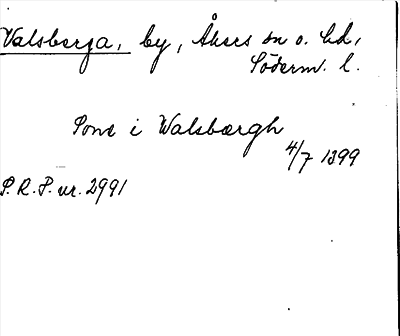 Valsberga, by, Åkers sn o. hd,
Söderm. l.
Pone i Walsbærgh
4/7 1399
S.R.P. nr. 2991